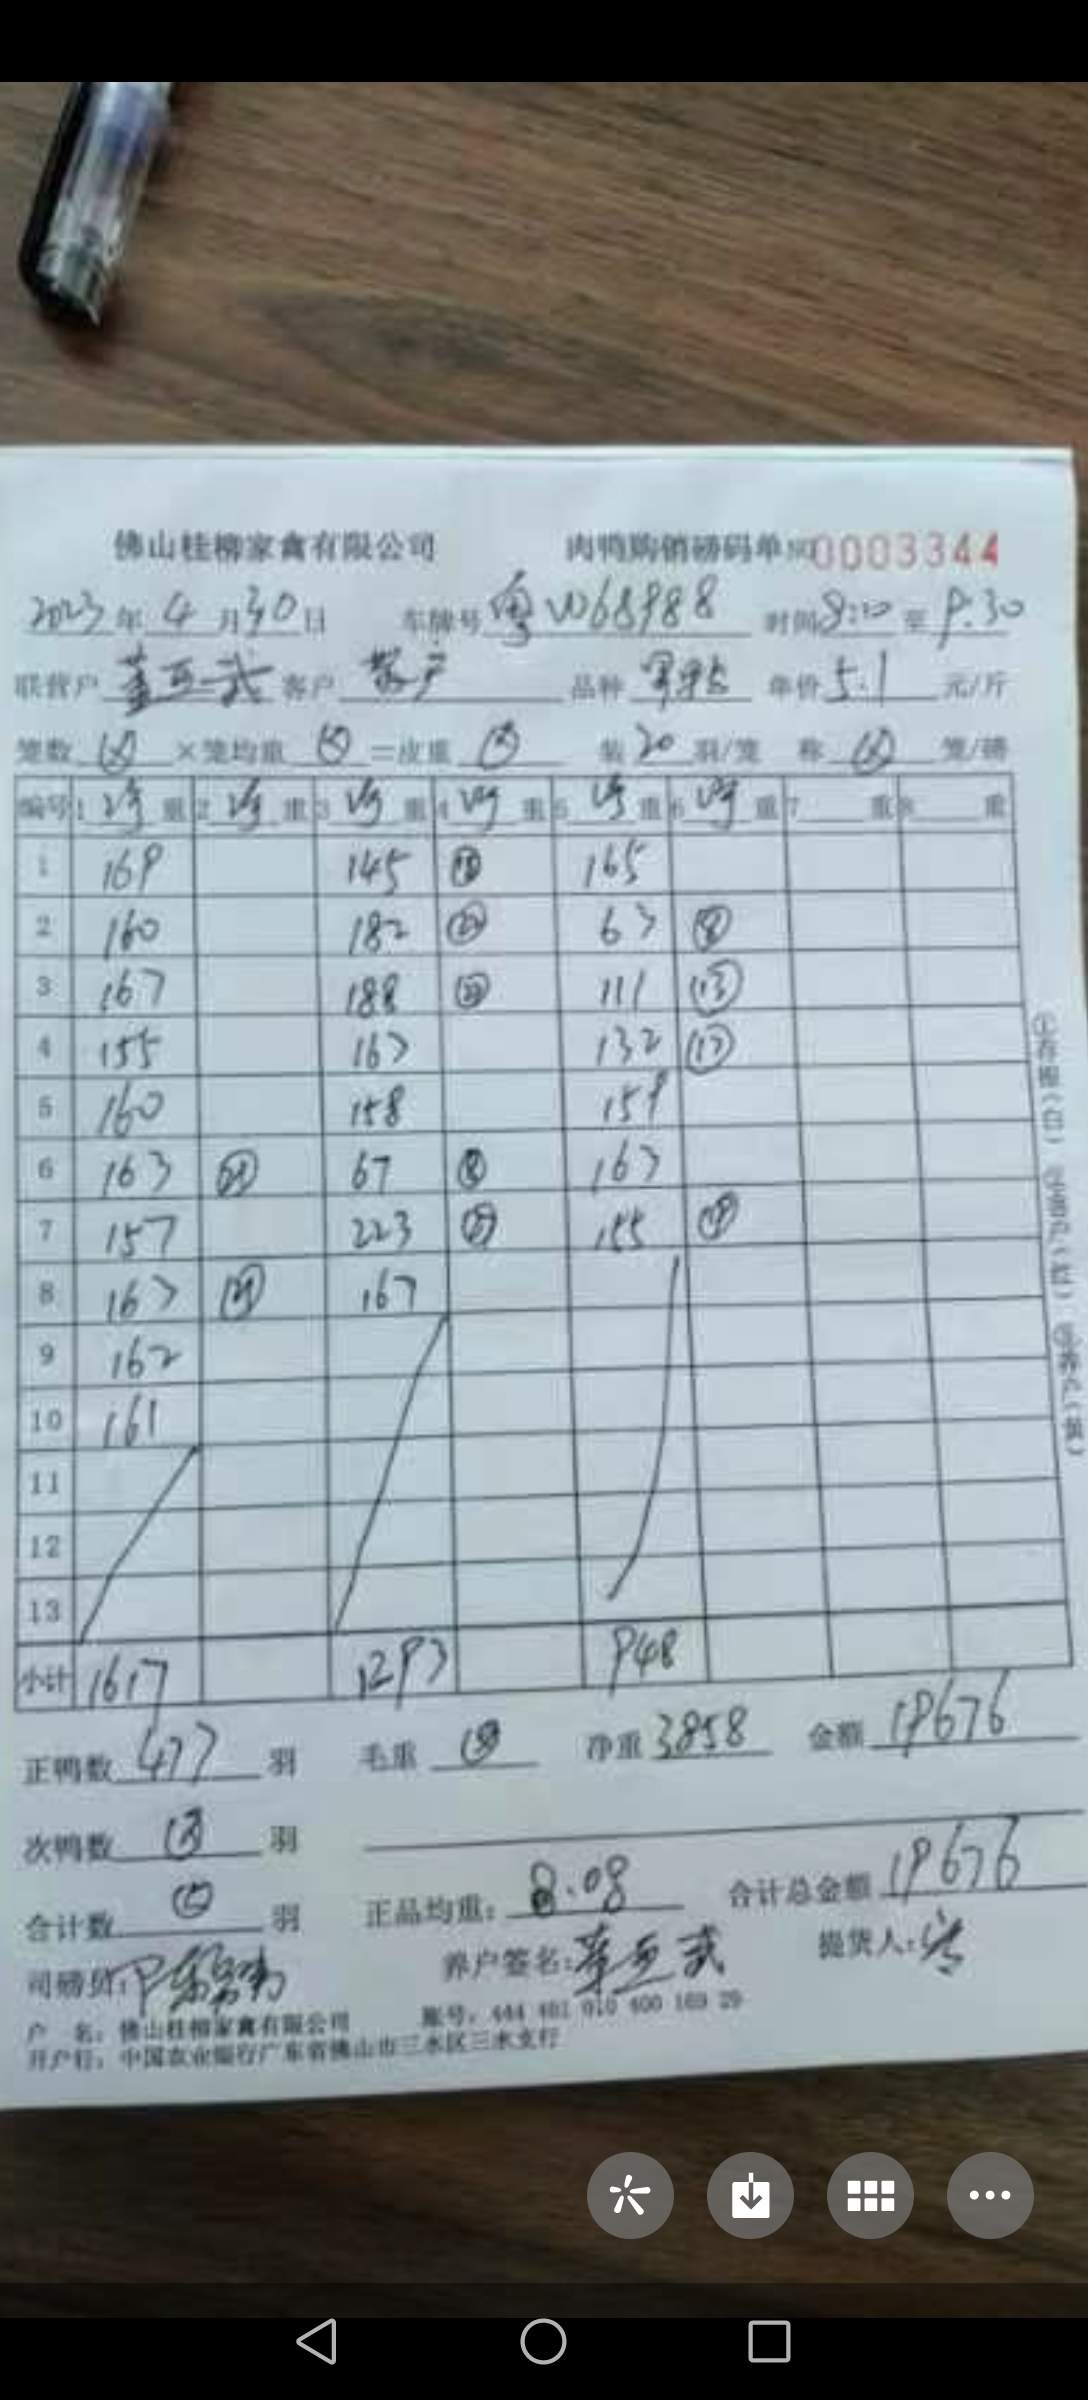 佛山桂柳家禽有限公司 肉鸭购销磅码单 NO0003344
2023年4月30日 车牌号 粤W68988 时间8:10至9:30
联营户 客户 散户 品种 单价5.1元/斤
笼数 ×笼均重 =皮重 装20羽/笼 称 笼/磅
编号 1 净重 2 净重 3 净重 4 净重 5 净重 6 净重 7 重 8 重
1 169 145 165
2 160 182 63 ⑧
3 167 188 111 ⑬
4 155 163 132
5 160 158 159
6 163 67 ⑧ 163
7 157 223 155 ⑲
8 163 167
9 162
10 161
11
12
13
小计 1617 1293 948
正鸭数 477 羽 毛重 净重 3858 金额 19676
次鸭数 羽
合计数 羽 正品均重: 8.08 合计总金额 19676
司磅员: 养户签名: 提货人:
户 名: 佛山桂柳家禽有限公司 账号: 444 401 010 400 169 29
开户行: 中国农业银行广东省佛山市三水区三水支行
①存根(白) ②客户(红) ③养户(黄)